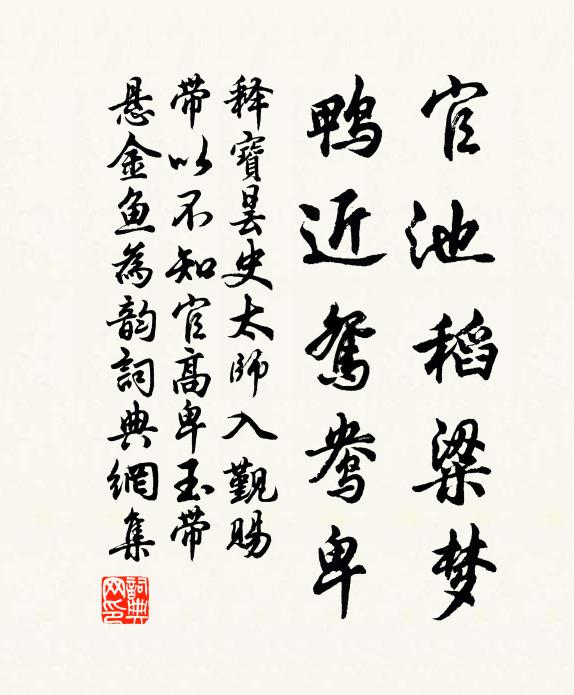 官池稻粱梦
鸭近鸳鸯卑
释寶曇史太师入觐赐
带以不知官高卑玉带
悬金鱼為韵詞典網集
詞典网印